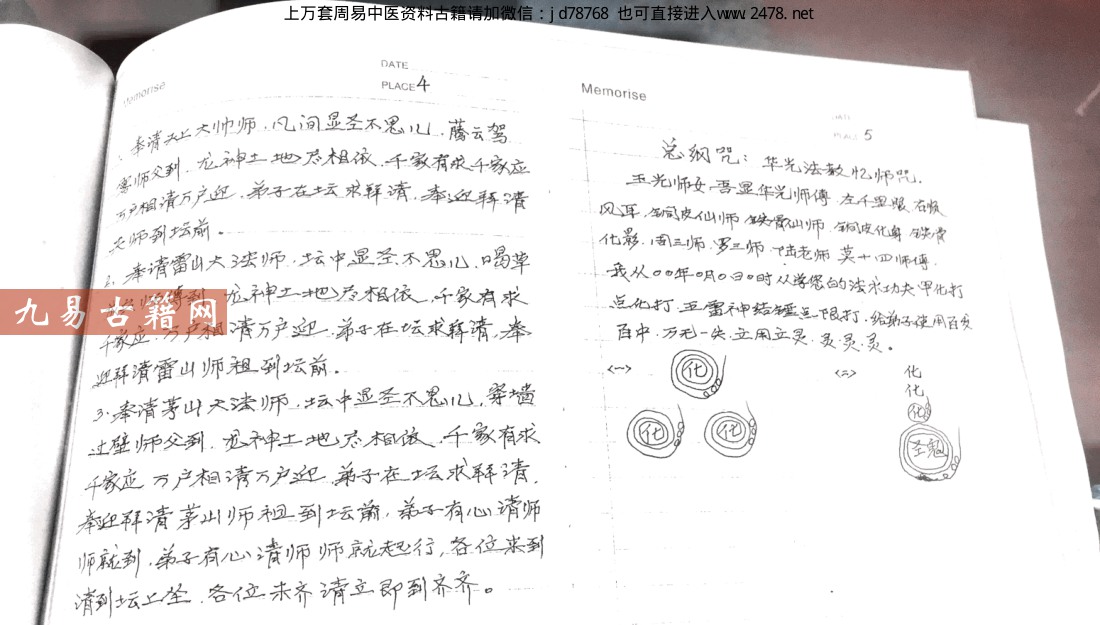 上万套周易中医资料古籍请加微信：jd78768 也可直接进入www.2478.net
Memorise
DATE
PLACE 4
奉请天上大帅师.凡间显圣不思儿.藤云驾
雾师父到.龙神土地尽相依.千家有求千家应
万户相请万户迎.弟子在坛求拜请.奉迎拜请
天师到坛前。
2.奉请雷山大法师.坛中显圣不思儿.喝草
龙神土地尽相依.千家有求
千家应.万户相请万户迎.弟子在坛求拜请.奉
迎拜请雷山师祖到坛前。
3.奉请茅山大法师.坛中显圣不思儿.穿墙
过壁师父到.龙神土地尽相依.千家有求
千家应 万户相请万户迎.弟子在坛求拜请.
奉迎拜请茅山师祖到坛前.弟子有心请师
师就到.弟子有心请师师就起行,各位来到
请到坛上坐.各位未齐请立即到齐齐。
九易古籍网
Memorise
DATE
PLACE 5
总纲咒：华光法教忆师咒.
玉光师女.吾显华光师傅.左千里眼 右顺
风耳.铜皮仙师 铁骨仙师.铜皮化身 铁骨
化影.周三师.罗三师 陆老师 莫十四师傅.
我从00年0月0日0时从学您的法水功夫 甲化打
点化打.五雷神结 点限打.给弟子使用百发
百中.万无一失.立用立灵.灵.灵.灵。
<一>
化
化
化
<二>
化
化
化
圣